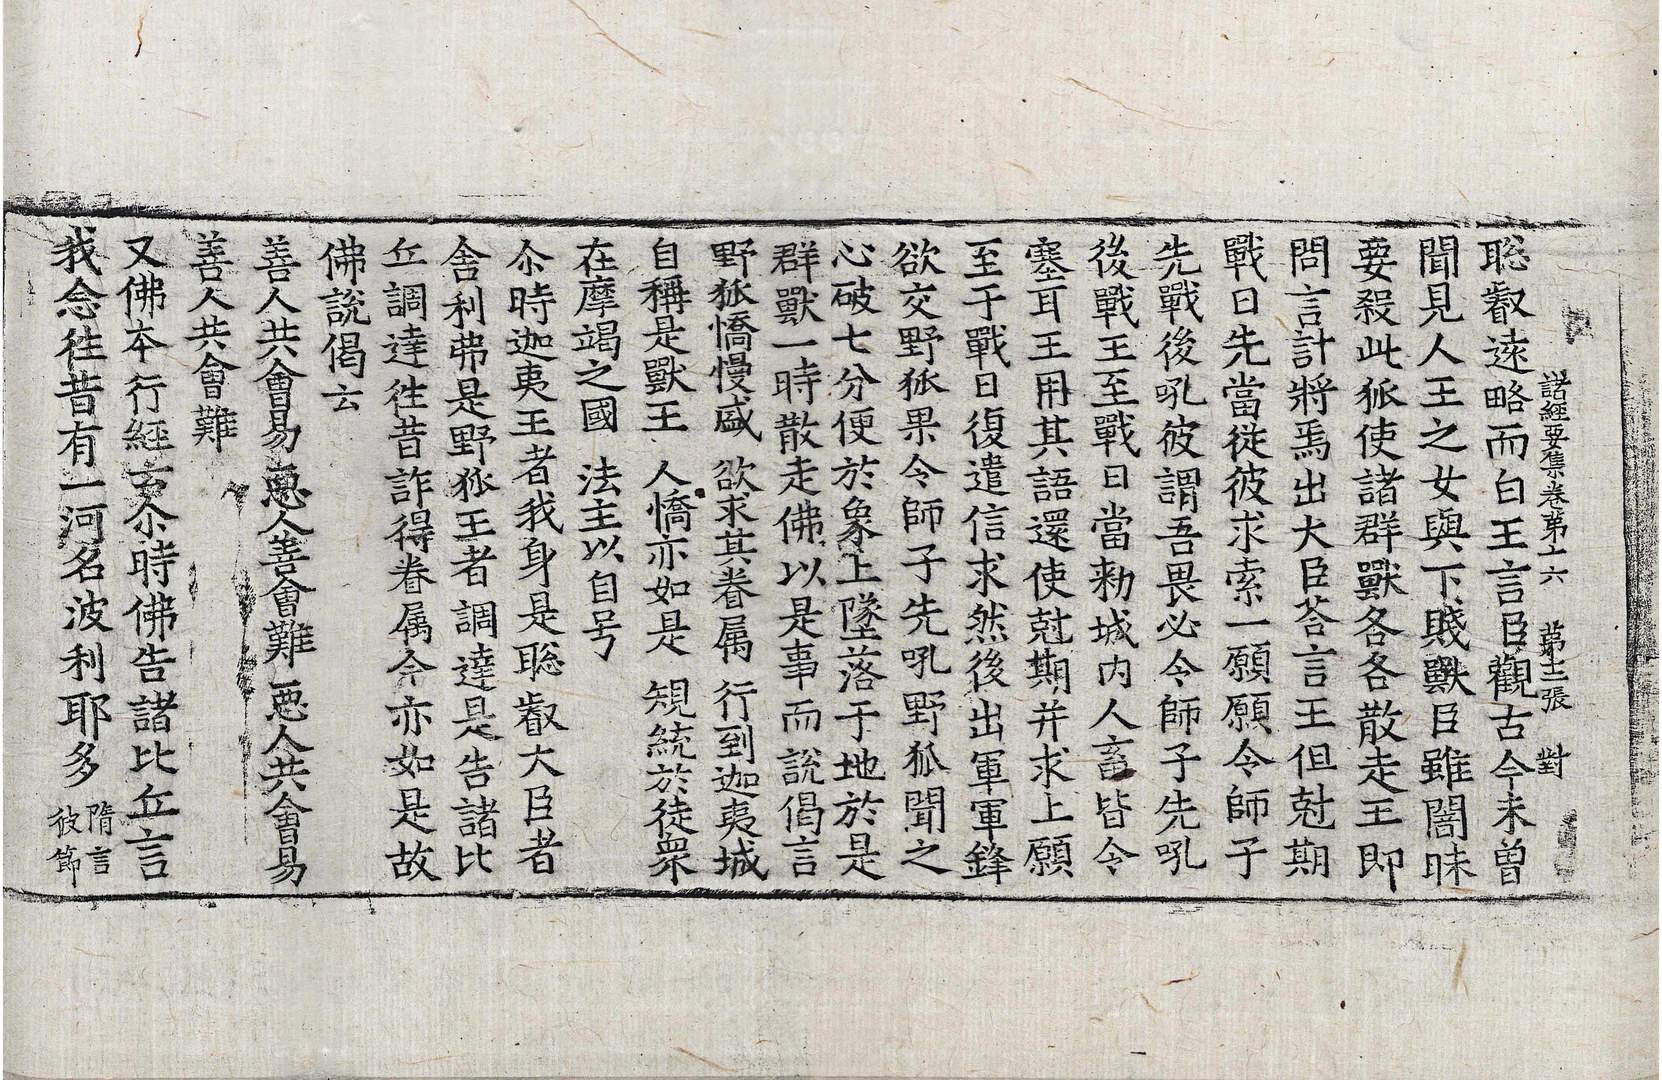 諸經要集卷第十六 第十三張 對
聡叡遠略而白王言臣觀古今未曽
聞見人王之女與下賤獸臣雖闇昧
要殺此狐使諸群獸各各散走王即
問言計將焉出大臣荅言王但尅期
戰日先當從彼求索一願願令師子
先戰後吼彼謂吾畏必令師子先吼
後戰王至戰日當勑城内人畜皆令
塞耳王用其語還使尅期并求上願
至于戰日復遣信求然後出軍軍鋒
欲交野狐果令師子先吼野狐聞之
心破七分便於象上墜落于地於是
群獸一時散走佛以是事而說偈言
野狐憍慢盛 欲求其眷属 行到迦夷城
自稱是獸王 人憍亦如是 䂓統於徒衆
在摩竭之國 法主以自号
尒時迦夷王者我身是聡叡大臣者
舎利弗是野狐王者調達是告諸比
丘調達徃昔詐得眷属今亦如是故
佛說偈云
善人共會易 惡人善會難 惡人共會易
善人共會難
又佛本行經云尒時佛告諸比丘言
我念徃昔有一河名波利耶多 隋言彼節